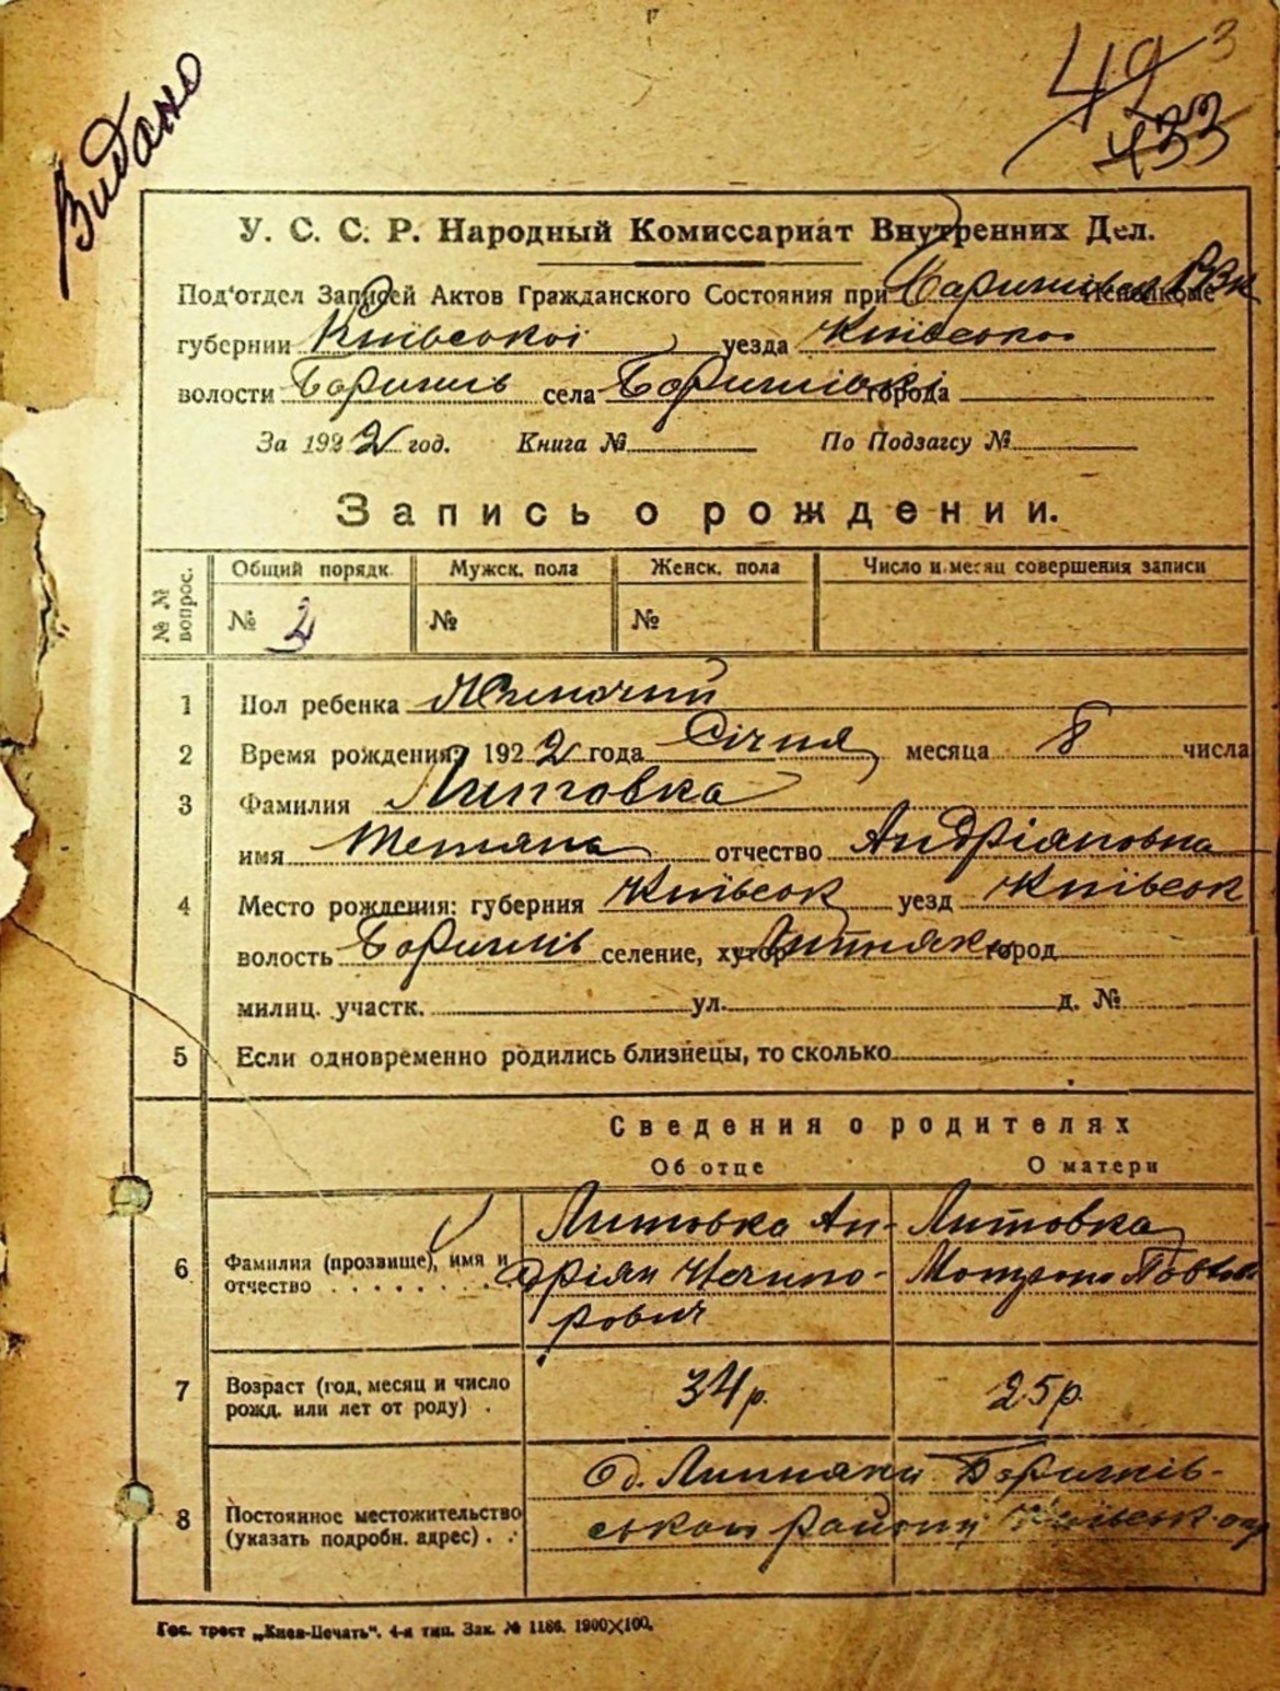 Видано
42 3
433
У. С. С. Р. Народный Комиссариат Внутренних Дел.
Под'отдел Записей Актов Гражданского Состояния при РВК
губернии Київської уезда Київської
волости Баришів села Баришівкі города
За 1922 год. Книга № По Подзагсу №
Запись о рождении.
№ № вопрос. Общий порядк. Мужск. пола Женск. пола Число и месяц совершения записи
№ 2 № №
1 Пол ребенка Жиночий
2 Время рождения: 1922 года Січня месяца 8 числа
3 Фамилия Литовка
имя Тетяна отчество Андріяновна
4 Место рождения: губерния Київськ уезд Київськ
волость Баришів селение, хутор Липняки город
милиц. участк. ул. д. №
5 Если одновременно родились близнецы, то сколько
Сведения о родителях
Об отце О матери
6 Фамилия (прозвище), имя и отчество Литовка Ан-дріян Нечипо-рович Литовка Мотрона
7 Возраст (год, месяц и число рожд. или лет от роду) 34 р. 25 р.
8 Постоянное местожительство (указать подробн. адрес) Липняки Баришів-
району Київськ. окр
Гос. трест „Киев-Печать“. 4-я тип. Зак. № 1186. 1900×100.